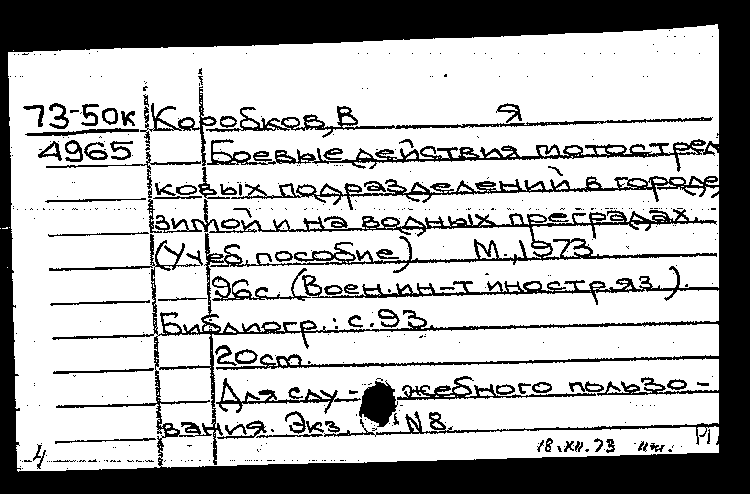 73-50к Коробков, В Я
4965 Боевые действия мотострел
ковых подразделений в городе,
зимой и на водных преградах.
(Учеб. пособие) М., 1973
96с. (Воен. ин-т иностр. яз.).
Библиогр.: с. 93.
20ст.
Для слу- жебного пользо-
вания. Экз. N 8.
4 18.XII.73